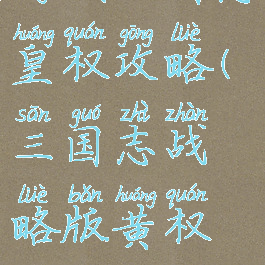 huáng quán gōng lüè
皇权攻略(
sān guó zhì zhàn
三国志战
lüè bǎn huáng quán
略版黄权